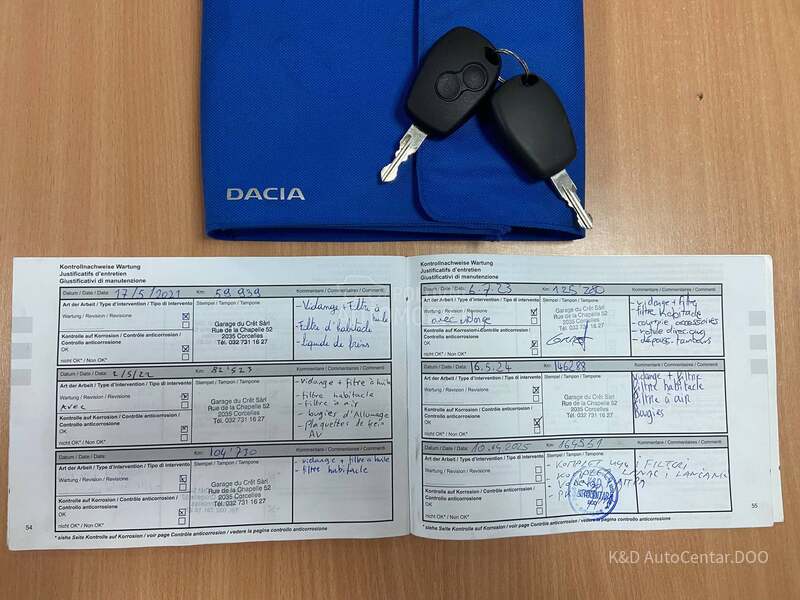 DACIA
Kontrollnachweise Wartung
Justificatifs d'entretien
Giustificativi di manutenzione
Datum / Date / Data: 17/5/2021 Km: 59.939 Kommentare / Commentaires / Commenti
Art der Arbeit / Type d'intervention / Tipo di intervento Stempel / Tampon / Tampone
Wartung / Revision / Revisione
Kontrolle auf Korrosion / Contrôle anticorrosion / Controllo anticorrosione:
OK
nicht OK* / Non OK*
Garage du Crêt Sàrl
Rue de la Chapelle 52
2035 Corcelles
Tél. 032 731 16 27
- Vidange + Filtre à huile
- Filtre d'habitacle
- liquide de freins
Datum / Date / Data: 2/5/22 Km: 82'523 Kommentare / Commentaires / Commenti
Art der Arbeit / Type d'intervention / Tipo di intervento Stempel / Tampon / Tampone
Wartung / Revision / Revisione
Avec
Kontrolle auf Korrosion / Contrôle anticorrosion / Controllo anticorrosione:
OK
nicht OK* / Non OK*
Garage du Crêt Sàrl
Rue de la Chapelle 52
2035 Corcelles
Tél. 032 731 16 27
- Vidange + filtre à huile
- filtre habitacle
- filtre à air
- bougies d'Allumage
- Plaquettes de frein
AV
Datum / Date / Data: Km: 104'730 Kommentare / Commentaires / Commenti
Art der Arbeit / Type d'intervention / Tipo di intervento Stempel / Tampon / Tampone
Wartung / Revision / Revisione
Kontrolle auf Korrosion / Contrôle anticorrosion / Controllo anticorrosione:
OK
nicht OK* / Non OK*
Garage du Crêt Sàrl
Rue de la Chapelle 52
2035 Corcelles
Tél. 032 731 16 27
- vidange + filtre à huile
- filtre habitacle
54
* siehe Seite Kontrolle auf Korrosion / voir page Contrôle anticorrosion / vedere la pagina controllo anticorrosione
Kontrollnachweise Wartung
Justificatifs d'entretien
Giustificativi di manutenzione
Datum / Date / Data: 6.7.23 Km: 125'280 Kommentare / Commentaires / Commenti
Art der Arbeit / Type d'intervention / Tipo di intervento Stempel / Tampon / Tampone
Wartung / Revision / Revisione
avec vidange
Kontrolle auf Korrosion / Contrôle anticorrosion / Controllo anticorrosione:
OK
nicht OK* / Non OK*
Garage du Crêt Sàrl
Rue de la Chapelle 52
2035 Corcelles
Tél. 032 731 16 27
- vidange + filtre
- filtre habitacle
- courroie accessoires
- rotule direction
- dépous. tambours
Datum / Date / Data: 16.5.24 Km: 146288 Kommentare / Commentaires / Commenti
Art der Arbeit / Type d'intervention / Tipo di intervento Stempel / Tampon / Tampone
Wartung / Revision / Revisione
Kontrolle auf Korrosion / Contrôle anticorrosion / Controllo anticorrosione:
OK
nicht OK* / Non OK*
Garage du Crêt Sàrl
Rue de la Chapelle 52
2035 Corcelles
Tél. 032 731 16 27
Vidange + filtre
Filtre habitacle
Filtre à air
Bougies
Datum / Date / Data: 10.04.2025 Km: 164551 Kommentare / Commentaires / Commenti
Art der Arbeit / Type d'intervention / Tipo di intervento Stempel / Tampon / Tampone
Wartung / Revision / Revisione
Kontrolle auf Korrosion / Contrôle anticorrosion / Controllo anticorrosione:
OK
nicht OK* / Non OK*
- KOMPLET ULJE I FILTERI
- KOMPLET LANAC I LANČANIK
55
* siehe Seite Kontrolle auf Korrosion / voir page Contrôle anticorrosion / vedere la pagina controllo anticorrosione
K&D AutoCentar.DOO